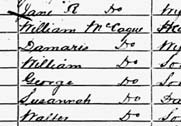 Jane R Do
William McCague
Damaris Do
William Do
George Do
Susannah Do
Walter Do